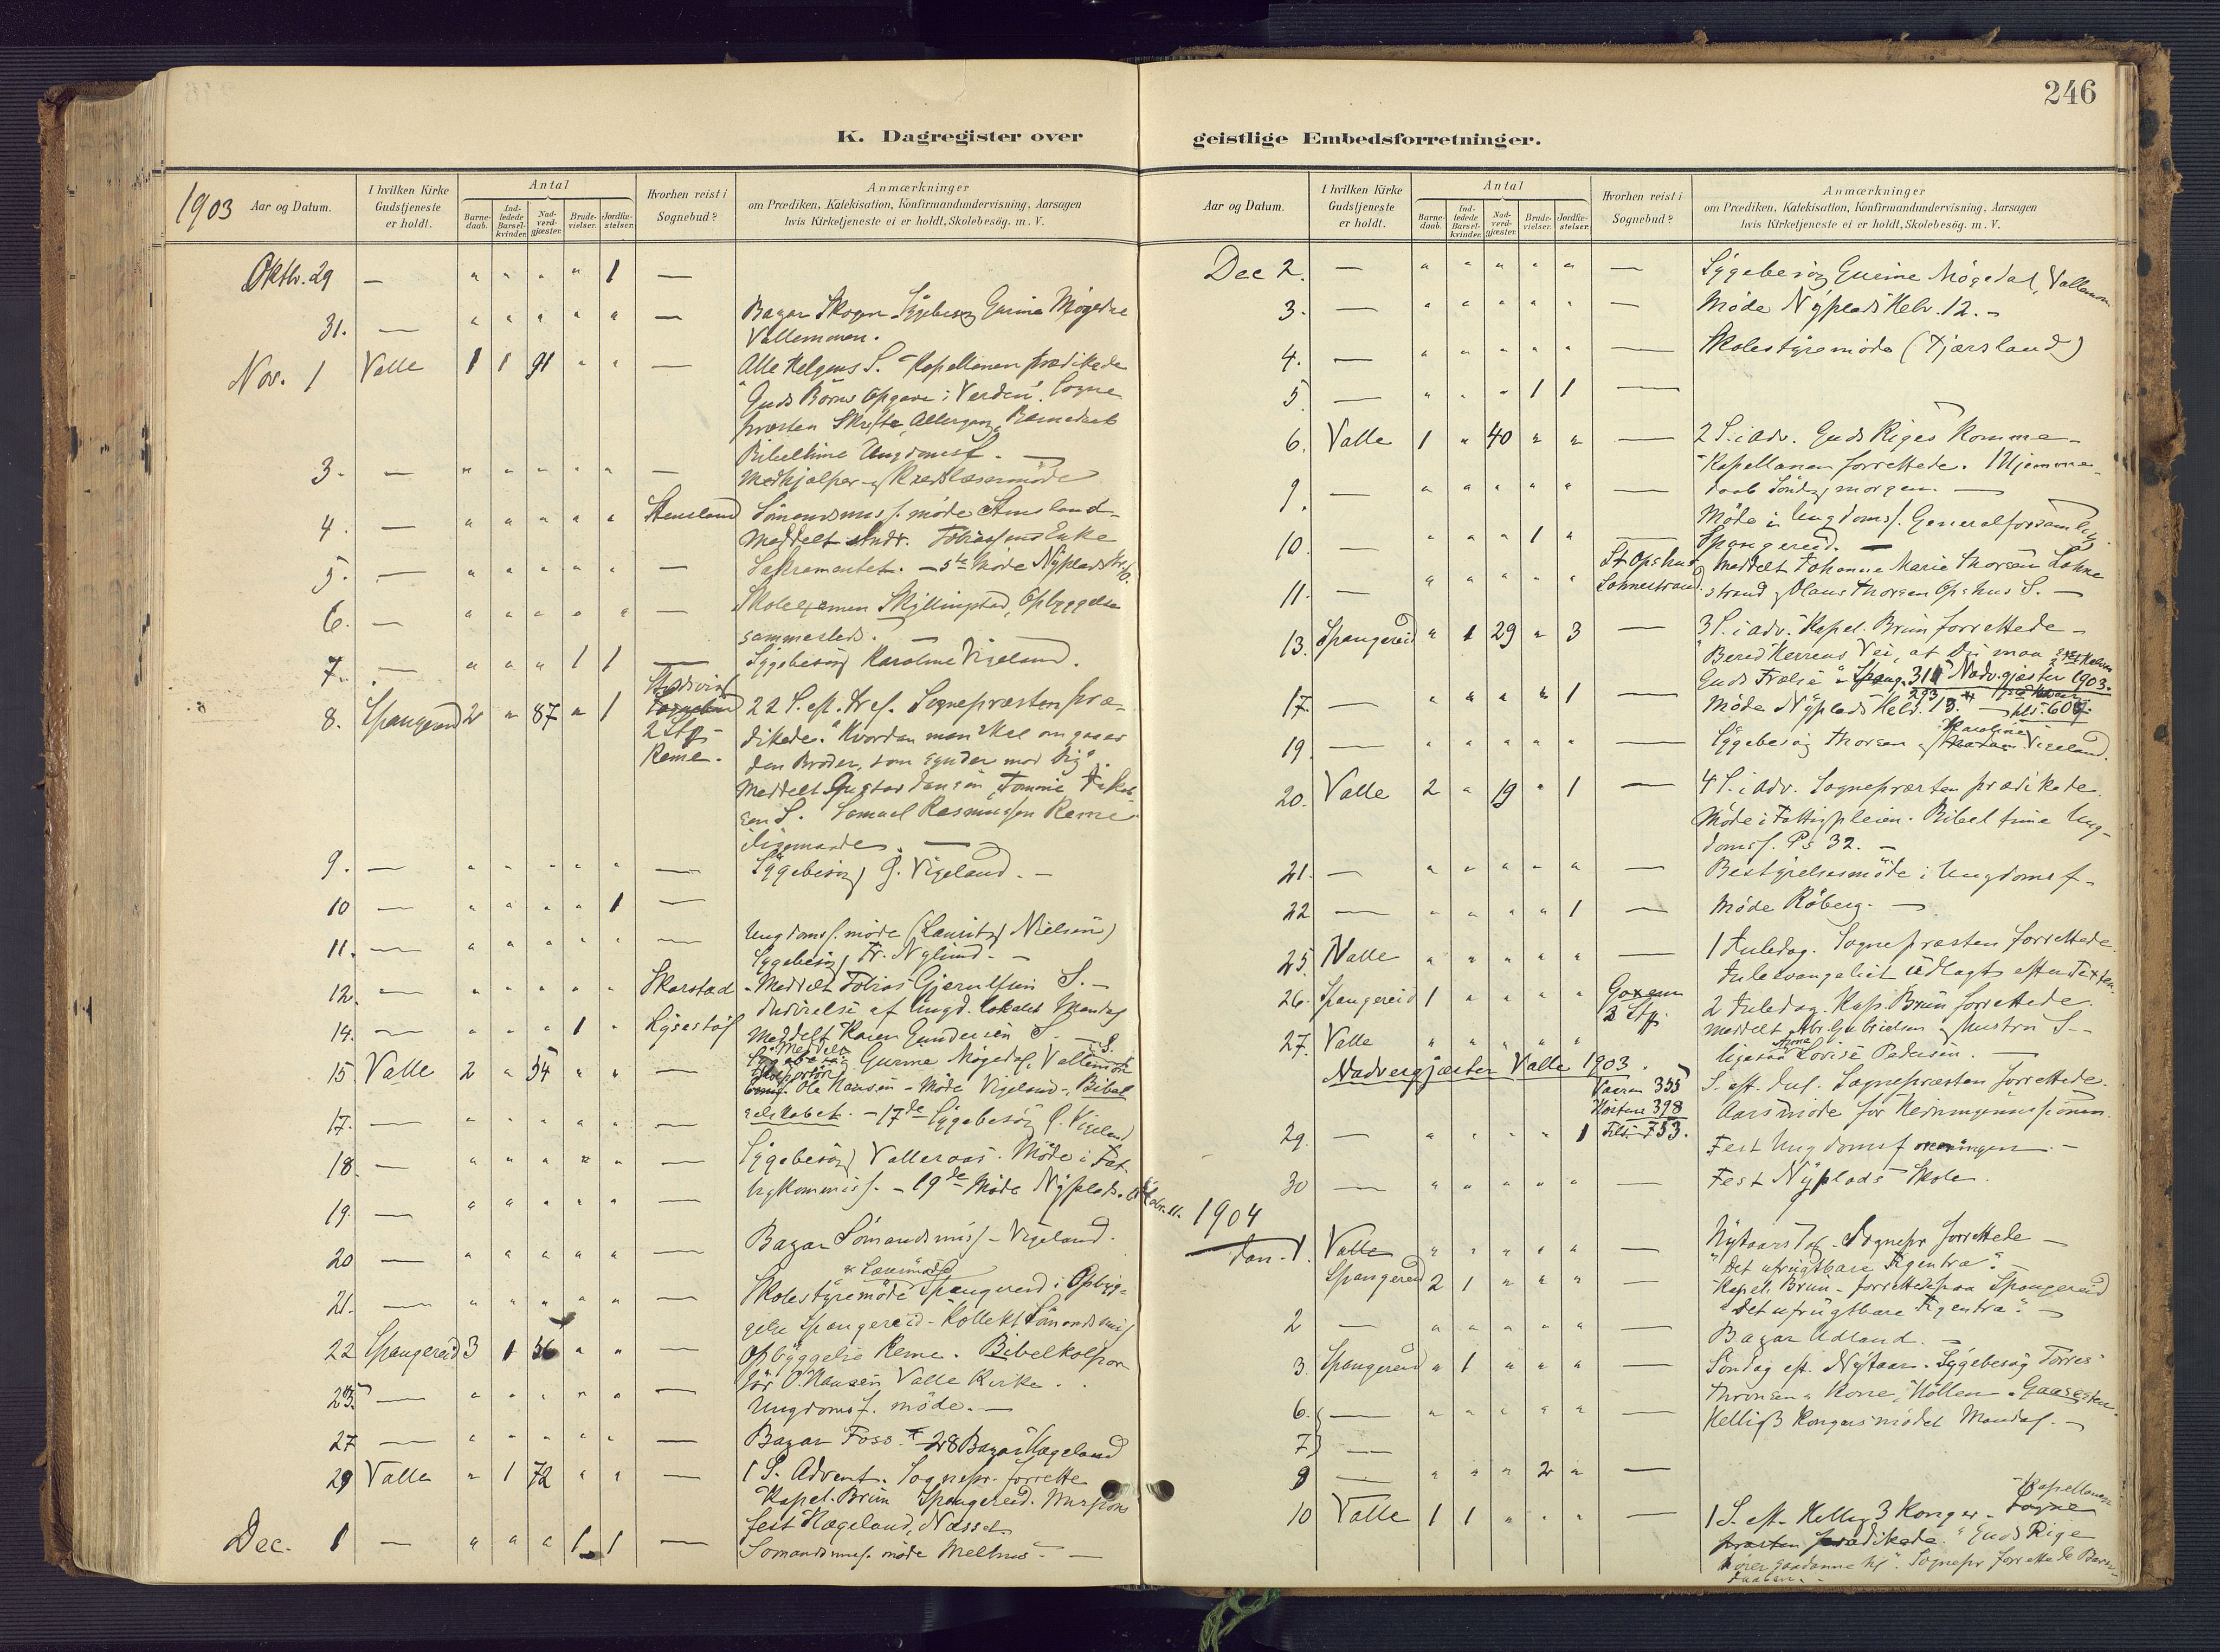 246
K. Dagregister over geistlige Embedsforretninger.
1903 Aar og Datum.
I hvilken Kirke Gudstjeneste er holdt.
Antal
Barnedaab. Indledede Barselkvinder. Nadverdgjæster. Brudevielser. Jordfæstelser.
Hvorhen reist i Sognebud?
Anmærkninger
om Prædiken, Katekisation, Konfirmandundervisning, Aarsagen
hvis Kirketjeneste ei er holdt, Skolebesög. m. V.
Oktbr. 29 — " " " " 1 —
31. — " " " " " — Bazar Skogen Sygebesøg Gurine Møgedal
Vallemoen.
Nov. 1 Valle 1 1 91 " " — Alle Helgens S. Kapellanen prædikede
"Guds Børns Opgave i Verden". Sogne
præsten Skrifte, Altergang, Barnedaab
Bibeltime Ungdomsf. —
3. — " " " " " — Medhjælper- og Kredslæsermøde
4. — " " " " " Stensland Sömandsmiss. møde Stensland
Meddelt Andr. Tobiassens Enke
5. — " " " " " — Sakramentet. — 5te Møde Nyplads Hebr. 10.
6. — " " " " " — Skoleexamen Skjllingstad, Opbyggelse
sammesteds. —
7. — " " " 1 1 — Sygebesøg Karoline Vigeland.
8. Spangereid 2 " 87 " 1
2 Stf
Reme.
22 S. eft. Tref. Sognepræsten præ-
dikede. "Hvordan man skal omgaaes
den Broder, som synder mod Dig".
Meddelt Gustav Jensen, Tomine Jakob-
sen S. Samuel Rasmussen Reme
ligemaade. —
9. — " " " " " — Sygebesøg G. Vigeland. —
10 — " " " " 1 —
11. — " " " " " — Ungdomsf. møde (Lauritz Nielsen)
Sygebesøg Fr. Nylund. —
12. — " " " " " Skarstad Meddelt Tobias Gjerulfsen S. —
Indvielse af Ungd. lokalet Mandag
14. — " " " 1 " Lysestøl Meddelt Karen Gundersen S. —
15. Valle 2 " 54 " " — Gurine Møgedal, Vallemoen
Ole Hansen - Møde Vigeland, Bibel
17. — " " " " " — selskabet. — 17de Sygebesøg G. Vigeland
18. — " " " " " — Sygebesøg Valleraas. Møde i Fat-
tigkommiss. — 19de Møde Nyplads. Hebr. 11.
19. — " " " " " —
20 — " " " " " — Bazar Sömandsmiss - Vigeland.
21. — " " " " " — Skolestyremøde Spangereid. Opbyg-
gelse Spangereid - Kollekt Sömandsmiss
22 Spangereid 3 1 56 " " — Opbyggelse Reme. Bibelkolpor-
tør O. Hansen Valle Kirke.
25. — " " " " " — Ungdomsf. møde. —
27 — " " " " " — Bazar Foss. — 28 Bazar Hægeland
29 Valle " 1 72 " " — 1 S. Advent. Sognepr. forrettede
Kapel. Brün Spangereid. Missions
fest Hægeland, Næsset
Dec. 1 — " " " 1 1 — Sömandsmiss. møde Melhus. —
Aar og Datum.
I hvilken Kirke Gudstjeneste er holdt.
Antal
Barnedaab. Indledede Barselkvinder. Nadverdgjæster. Brudevielser. Jordfæstelser.
Hvorhen reist i Sognebud?
Anmærkninger
om Prædiken, Katekisation, Konfirmandundervisning, Aarsagen
hvis Kirketjeneste ei er holdt, Skolebesög. m. V.
Dec 2. — " " " " " — Sygebesøg Gurine Møgedal, Vallemoen
3. — " " " " " — Møde Nyplads Hebr. 12. —
4. — " " " " " — Skolestyremøde (Tjærsland)
5 — " " " 1 1 —
6. Valle 1 " 40 " " — 2 S. i Adv. Guds Riges Komme —
Kapellanen forrettede. 1 Hjemme-
daab Söndag morgen. —
9. — " " " " " — Møde i Ungdomsf. Generalforsamling
10. — " " " 1 " — Spangereid. —
11. — " " " " " St Opshus Lohnestrand. Meddelt Johanne Marie Thorsen Lohne
strand og Olaus Thorsen Opshus S. —
13. Spangereid " 1 29 " 3 — 3 S. i Adv. Kapel. Brün forrettede —
"Bered Herrens Vei, at Du maa
Guds Frelse" — Spang. 311 Nadv. gjæster 1903.
17. — " " " " 1 — Møde Nyplads Hebr. 13. —
19. — " " " " " — Sygebesøg Thorsen og Karoline Vigeland.
20. Valle 2 " 19 " 1 — 4 S. i Adv. Sognepræsten prædikede.
Møde i Fattigpleien. Bibeltime Ung-
domsf. Ps 32. —
21. — " " " " " — Bestyrelsesmøde i Ungdomsf. —
22 — " " " " 1 — Møde Röberg. —
25. Valle " " " " " — 1 Juledag. Sognepræsten forrettede.
Juleevangeliet udlagt efter Texten.
26. Spangereid 1 " " " " Goxem 2 Stf. 2 Juledag. Kap. Brün forrettede.
meddelt Abr. Gabrielsen og Hustru S —
27. Valle " " " " " ligesaa Lovise Pedersen. —
Nadvergjæster Valle 1903.
Vaaren 355
Høsten 398
Tils. 753.
S. eft. Jul. Sognepræsten forrettede.
Aarsmøde for Hedningmissionen.
29. — " " " " 1 Fest Ungdomsforeningen. —
30 — " " " " " — Fest Nyplads Skole.
1904
Jan. 1. Valle " " " " " — Nytaarsdag. Sognepr. forrettede —
"Det ufrugtbare Figentræ". —
Spangereid 2 1 " " " — Kapel. Brün - forrettede paa Spangereid
"Det ufrugtbare Figentræ". —
2 — " " " " " — Bazar Udland. —
3. Spangereid " 1 " " " — Söndag eft. Nytaar. Sygebesøg Torres
Thronsen Korre, Höllen. Gaasesten.
6. — " " " " " — Hellig 3 Kongersmødet Mandag. —
7 —
9 — " " " 2 " —
10 Valle 1 1 " " " — 1 S. eft. Hellig 3 Konger. Kapellanen Sogne
præsten prædikede. "Guds Rige
hører saadanne til". Sognepr forrettede Barne-
daaben. —